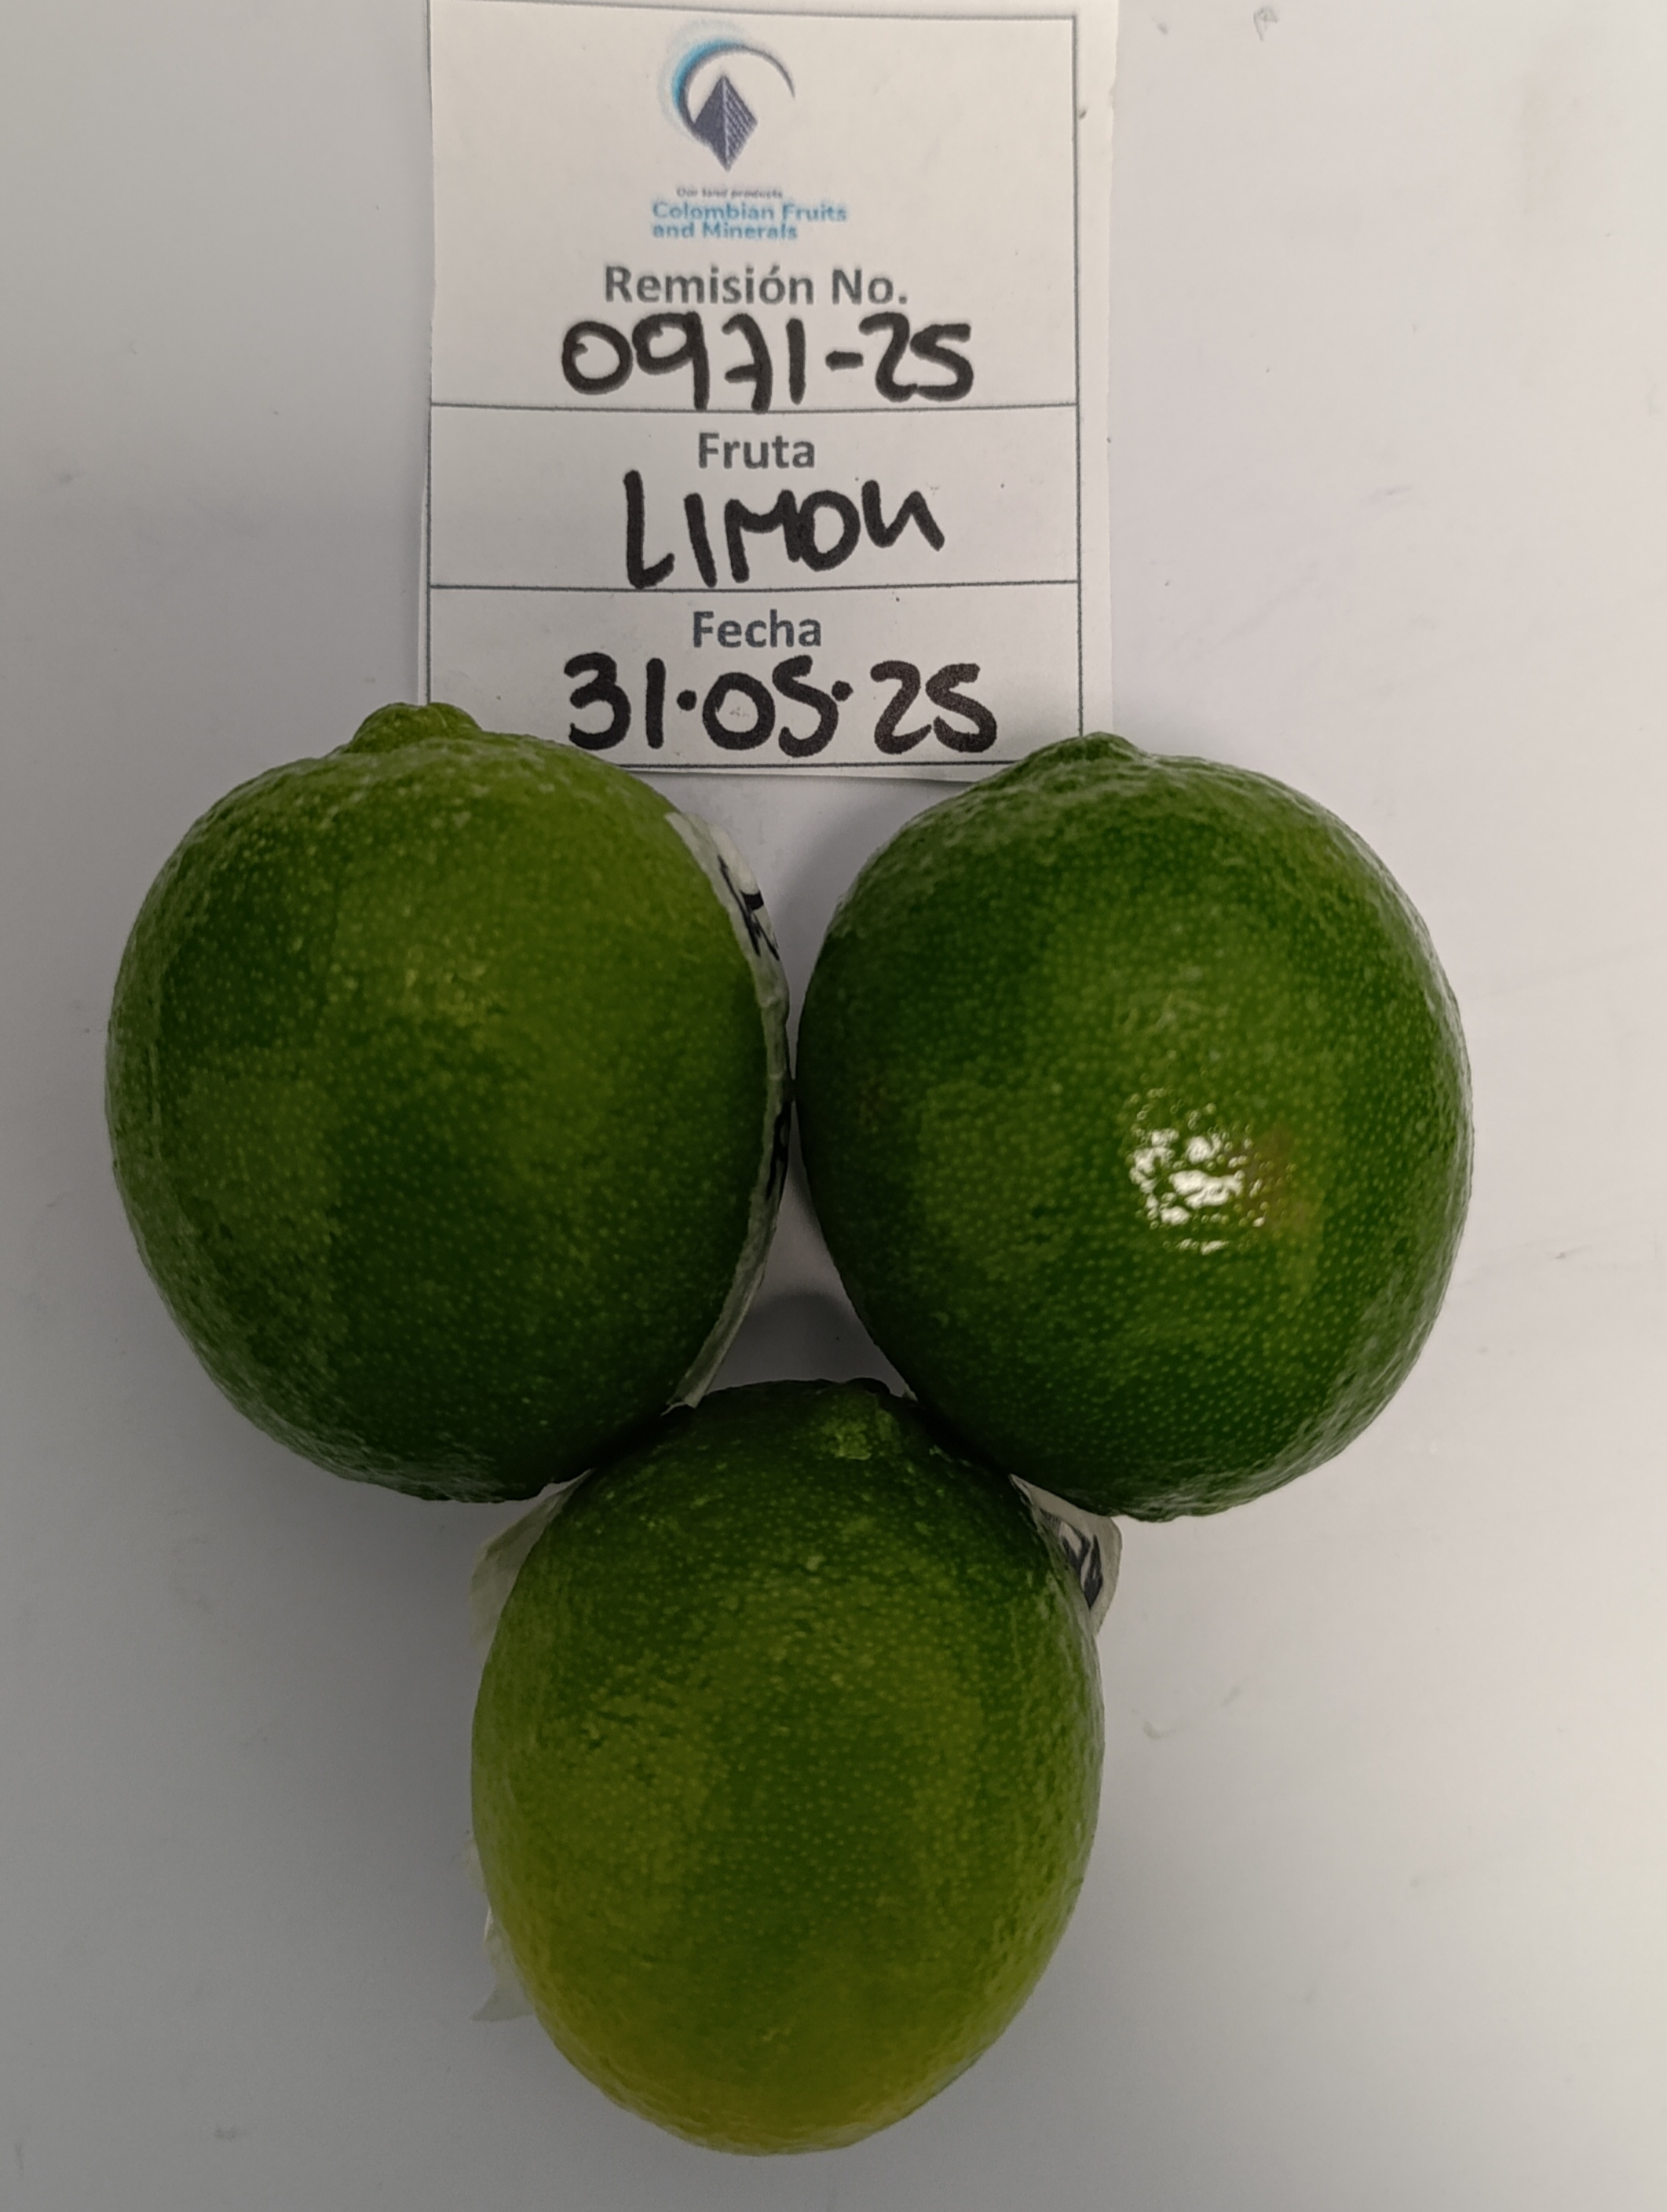 Our land products
Colombian Fruits
and Minerals
Remisión No.
0971-25
Fruta
LIMON
Fecha
31·05·25